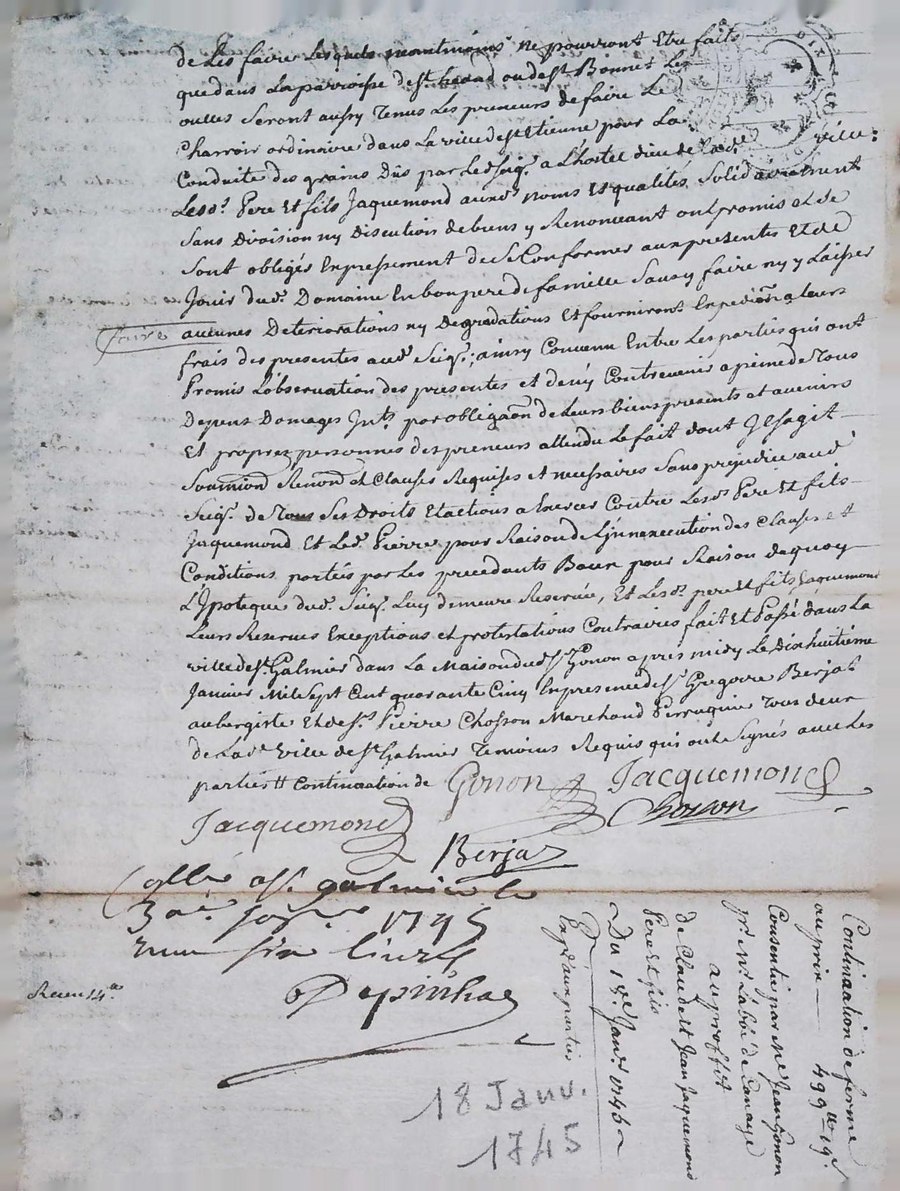 de Les faire Lesquels neantmoins ne pourront Etre faits
que dans La parroisse de St. héaad ou de St. Bonnet Les
oulles Seront aussy Tenus Les preneurs de faire Le
Charroir ordinaire dans La ville de St Etienne pour La
Conduite des grains Dûs par Led. Seigr. a L'hostel dieu de Lade. ville:
Lesds. Pere Et fils Jaquemond auxds. noms Et qualités Solidairement
Sans Division ny Discution de biens y Renonceant ont promis et Se
Sont obligés Expressement de Se Conformer aux presentes Et de
Jouir dud. Domaine En bon pere de famille Sans y faire ny y Laisser
faire aucunes Deteriorations ny Degradations Et fourniront Expedion. a Leurs
frais des presentes aud. Seigr.; ainsy Convenu Entre Les parties qui ont
Promis L'observation des presentes et de n'y Contrevenir a peine de Tous
Depens Domages Jnts. par obligaon de Leurs biens presents et avenirs
Et propres personnes des preneurs attendu Le fait dont Jl S'agit
Soumion Renonon et Clauses Requises et necessaires Sans prejudice aud.
Seigr. de Tous Ses Droits Et actions a Exercer Contre Lesds. Pere Et fils
Jaquemond Et Led. Pierre pour Raison de L'jnnexecution des Clauses et
Conditions portés par Les precedants Baux pour Raison de quoy
L'Ypoteque dud. Seigr. Luy demeure Reservée, Et Lesds. pere et fils Jaquemond
Leurs Reserves Exceptions et protestations Contraires fait Et Passé dans La
ville de St. Galmier dans La Maison dud. Sr. Gonon apres midy Le Dixhuitième
Janvier Mil Sept Cent quarante Cinq En presence de Sr. Gregoire Berjat
aubergiste Et de Sr. Pierre Chosson Marchand Perruquier Tous deux
de Lad. Ville de St Galmier Temoins Requis qui ont Signés avec Les
parties Continuation de Gonon Jacquemond
Jacquemond Chosson
Berjat
Collé a St. galmier le
30e janvr 1745
Recu 14s.
Depinhac
Continuation de ferme
au prix — 499tt 19s.
Consentie par Me Jean Gonon
pr. Mr. L'abbé de
au proffit
de Claude et Jean Jaquemond
Pere et fils
Du 18e. Janvr 1745
Expon aux parties
18 Janv.
1745